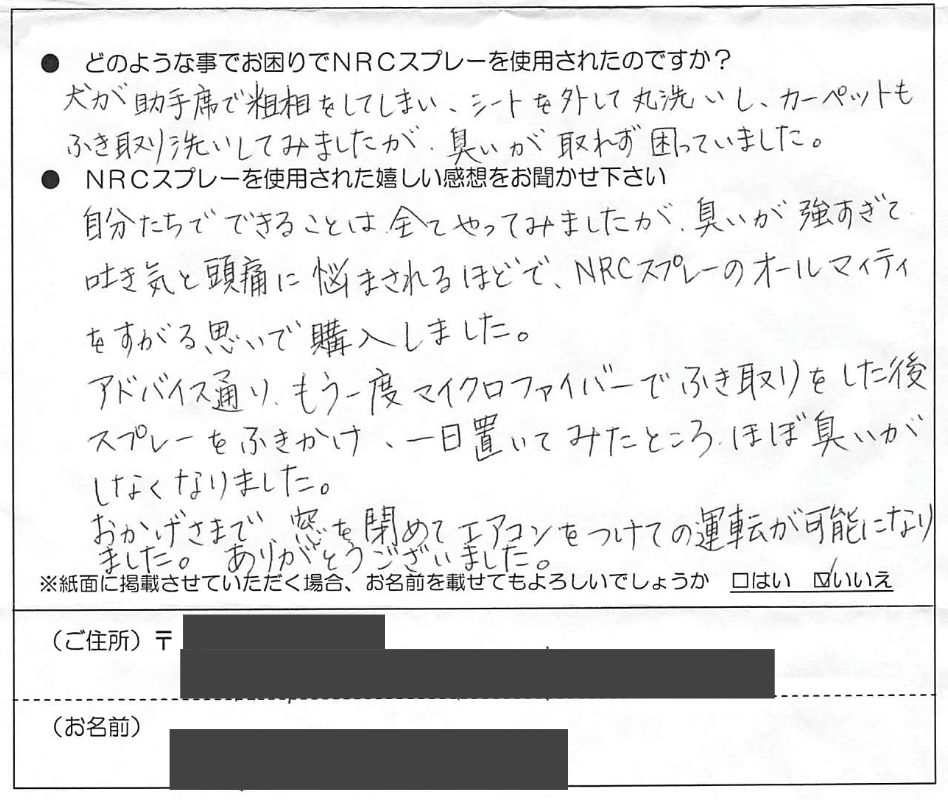 ● どのような事でお困りでNRCスプレーを使用されたのですか?
犬が助手席で粗相をしてしまい、シートを外して丸洗いし、カーペットも
ふき取り洗いしてみましたが、臭いが取れず困っていました。
● NRCスプレーを使用された嬉しい感想をお聞かせ下さい
自分たちでできることは全てやってみましたが、臭いが強すぎて
吐き気と頭痛に悩まされるほどで、NRCスプレーのオールマイティ
をすがる思いで購入しました。
アドバイス通り、もう一度マイクロファイバーでふき取りをした後
スプレーをふきかけ、一日置いてみたところ、ほぼ臭いが
しなくなりました。
おかげさまで窓を閉めてエアコンをつけての運転が可能になり
ました。ありがとうございました。
※紙面に掲載させていただく場合、お名前を載せてもよろしいでしょうか □はい ☑いいえ
(ご住所)〒
(お名前)